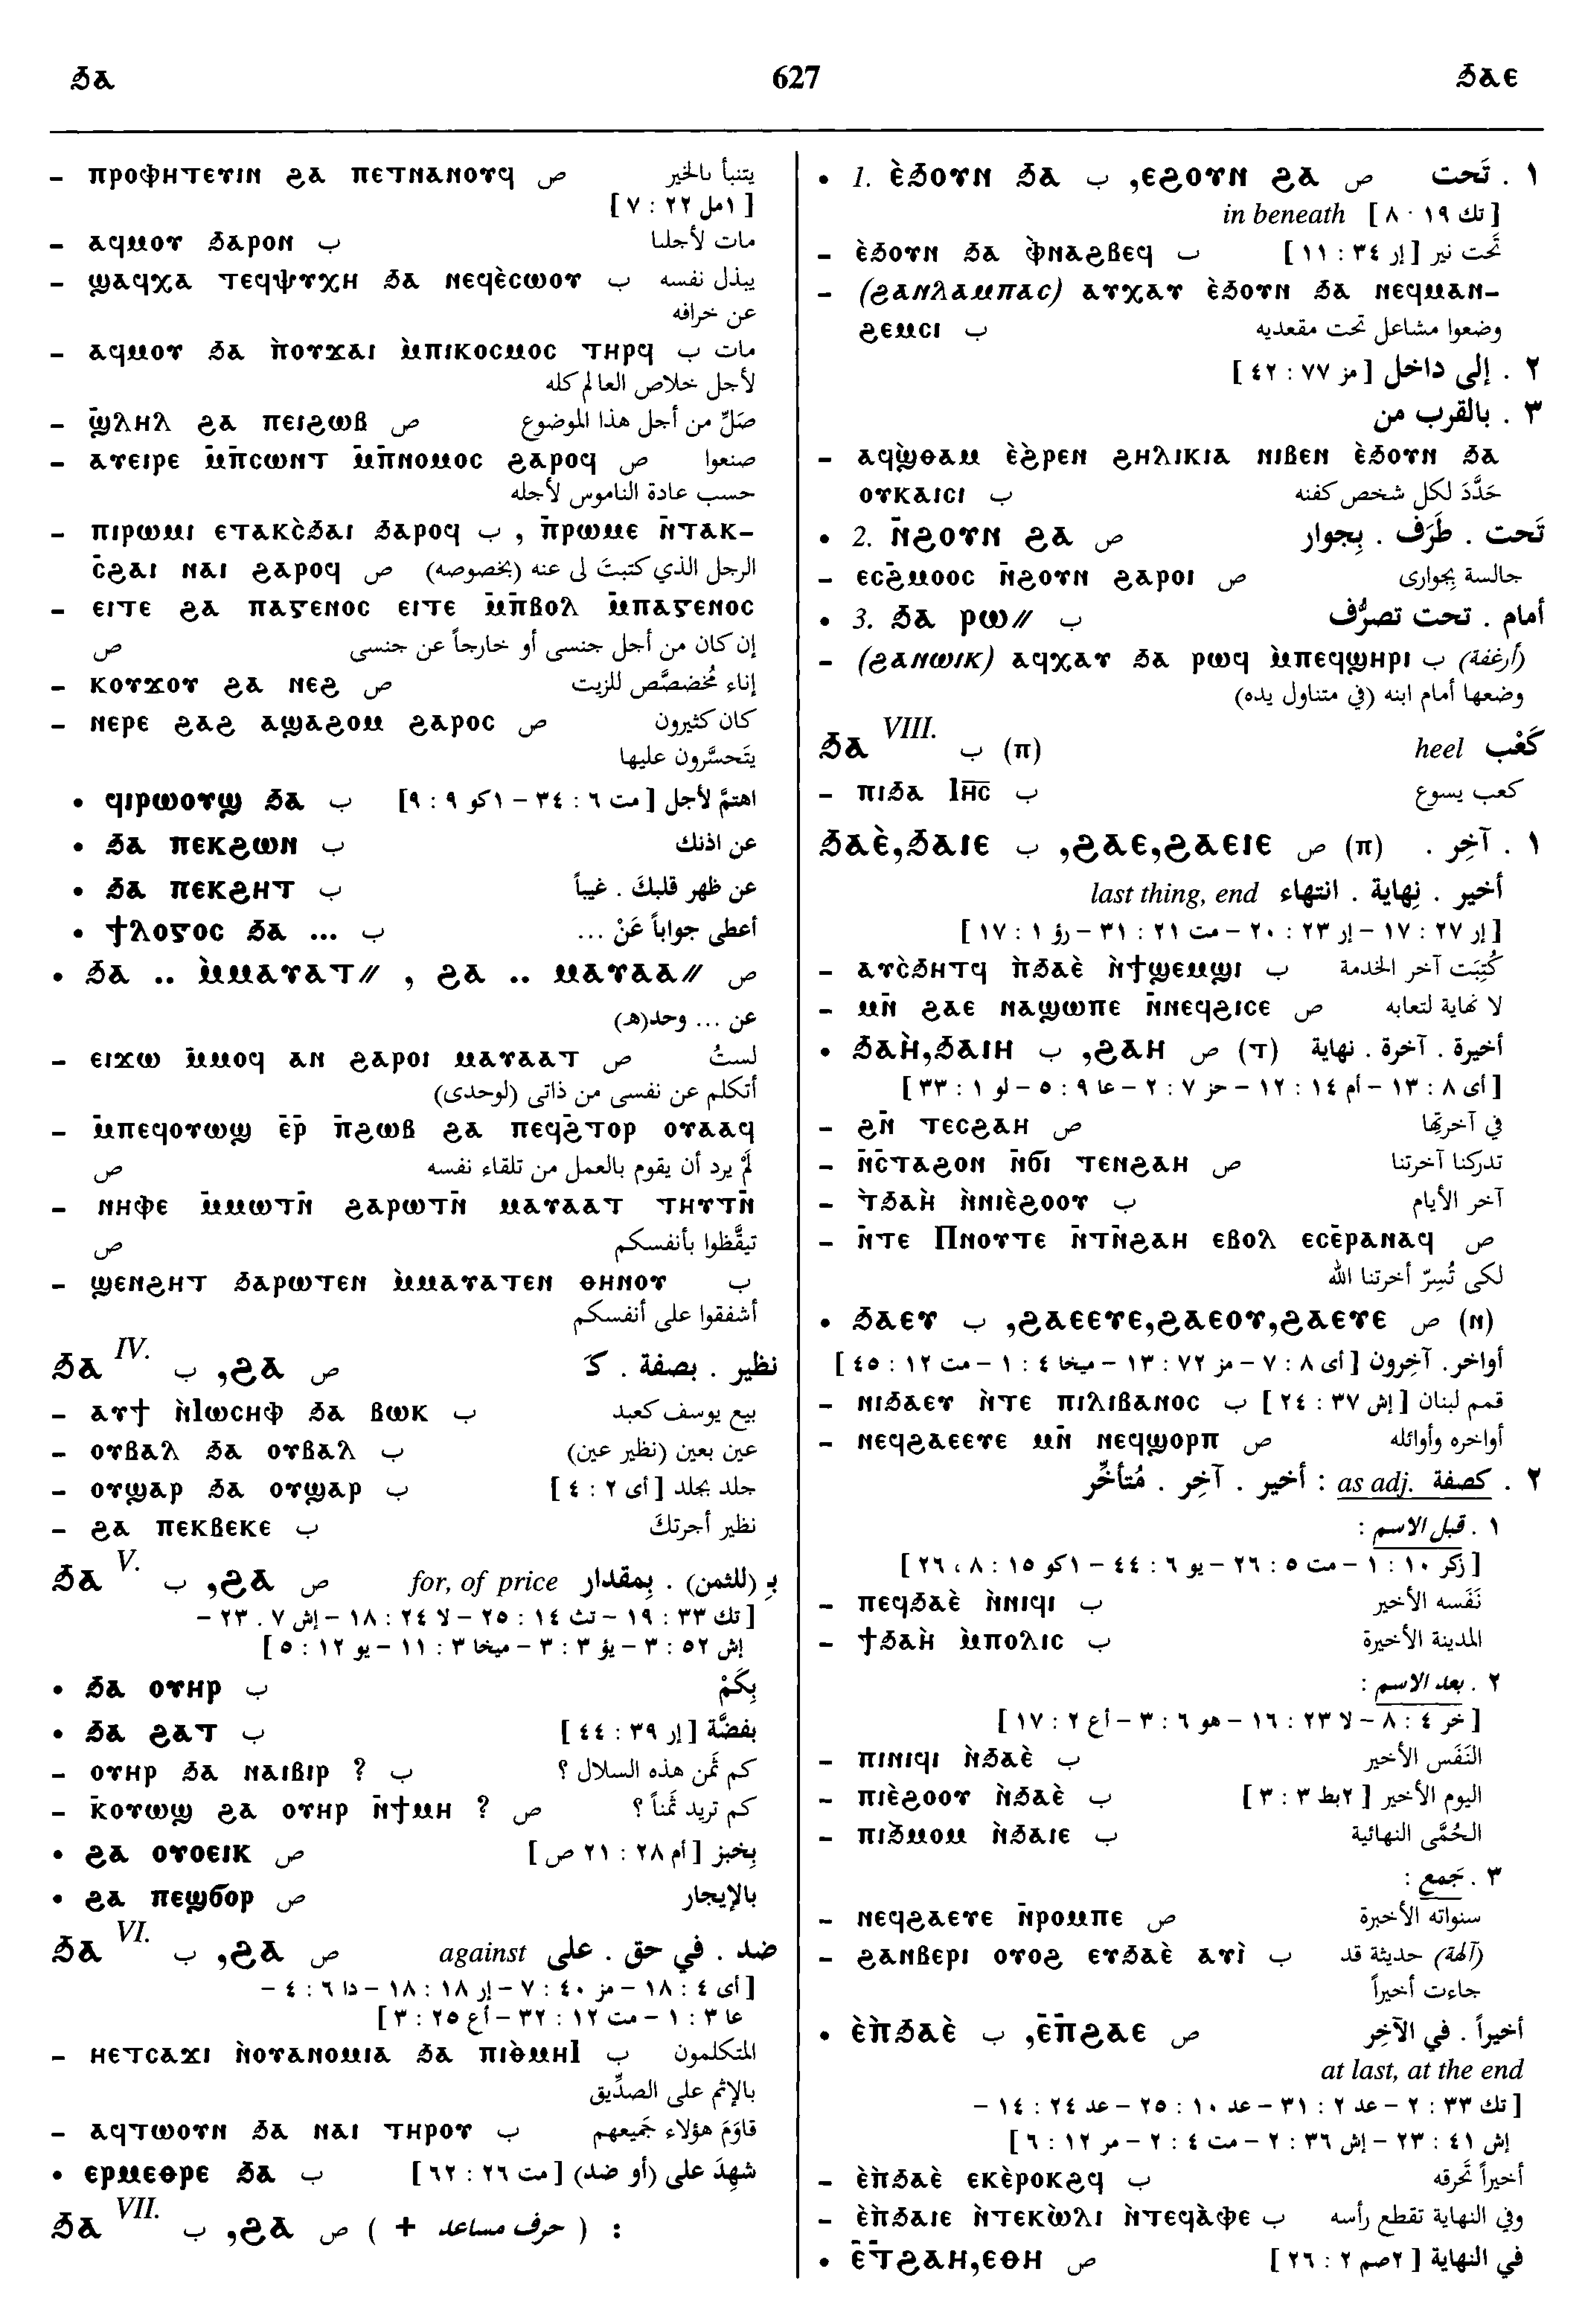 ϧⲁ 627 ϧⲁⲉ
– ⲡⲣⲟⲫⲏⲧⲉⲩⲓⲛ ϩⲁ ⲡⲉⲧⲛⲁⲛⲟⲩϥ ص يتنبأ بالخير
[ ١مل ٢٢ : ٧ ]
– ⲁϥⲙⲟⲩ ϧⲁⲣⲟⲛ ب مات لأجلنا
– ϣⲁϥⲭⲁ ⲧⲉϥⲯⲩⲭⲏ ϧⲁ ⲛⲉϥⲉ̀ⲥⲱⲟⲩ ب يبذل نفسه
عن خرافه
– ⲁϥⲙⲟⲩ ϧⲁ ⲛ̀ⲟⲩϫⲁⲓ ⲙ̀ⲡⲓⲕⲟⲥⲙⲟⲥ ⲧⲏⲣϥ ب مات
لأجل خلاص العالم كله
– ϣ̄ⲗⲏⲗ ϩⲁ ⲡⲉⲓϩⲱⲃ ص صَلِّ من أجل هذا الموضوع
– ⲁⲩⲉⲓⲣⲉ ⲙ̄ⲡ̄ⲥⲱⲛⲧ ⲙ̄ⲡ̄ⲛⲟⲙⲟⲥ ϩⲁⲣⲟϥ ص صنعوا
حسب عادة الناموس لأجله
– ⲡⲓⲣⲱⲙⲓ ⲉⲧⲁⲕⲥ̀ϧⲁⲓ ϧⲁⲣⲟϥ ب , ⲡ̄ⲣⲱⲙⲉ ⲛ̄ⲧⲁⲕ-
ⲥ̄ϩⲁⲓ ⲛⲁⲓ ϩⲁⲣⲟϥ ص الرجل الذي كتبتَ لى عنه (بخصوصه)
– ⲉⲓⲧⲉ ϩⲁ ⲡⲁⲅⲉⲛⲟⲥ ⲉⲓⲧⲉ ⲙ̄ⲡ̄ⲃⲟⲗ ⲙ̄ⲡⲁⲅⲉⲛⲟⲥ
ص إن كان من أجل جنسى أو خارجاً عن جنسى
– ⲕⲟⲩϫⲟⲩ ϩⲁ ⲛⲉϩ ص إناء مُخصَّص للزيت
– ⲛⲉⲣⲉ ϩⲁϩ ⲁϣⲁϩⲟⲙ ϩⲁⲣⲟⲥ ص كان كثيرون
يتَحسَّرون عليها
• ϥⲓⲣⲱⲟⲩϣ ϧⲁ ب اهتمَّ لأجل [ مت ٦ : ٣٤ – ١كو ٩ : ٩]
• ϧⲁ ⲡⲉⲕϩⲱⲛ ب عن اذنك
• ϧⲁ ⲡⲉⲕϩⲏⲧ ب عن ظهر قلبكَ . غيباً
• ϯⲗⲟⲅⲟⲥ ϧⲁ ... ب أعطى جواباً عَنْ ...
• ϧⲁ .. ⲙ̀ⲙⲁⲩⲁⲧ// , ϩⲁ .. ⲙⲁⲩⲁⲁ// ص
عن ... وحد(هـ)
– ⲉⲓϫⲱ ⲙ̄ⲙⲟϥ ⲁⲛ ϩⲁⲣⲟⲓ ⲙⲁⲩⲁⲁⲧ ص لستُ
أتكلم عن نفسى من ذاتى (لوحدى)
– ⲙ̄ⲡⲉϥⲟⲩⲱϣ ⲉ̄ⲣ̄ ⲡ̄ϩⲱⲃ ϩⲁ ⲡⲉϥϩ̄ⲧⲟⲣ ⲟⲩⲁⲁϥ
ص لَمْ يرد أن يقوم بالعمل من تلقاء نفسه
– ⲛⲏⲫⲉ ⲙ̄ⲙⲱⲧⲛ̄ ϩⲁⲣⲱⲧⲛ̄ ⲙⲁⲩⲁⲁⲧ ⲧⲏⲩⲧⲛ̄
ص تيقَّظوا بأنفسكم
– ϣⲉⲛϩⲏⲧ ϧⲁⲣⲱⲧⲉⲛ ⲙ̀ⲙⲁⲩⲁⲧⲉⲛ ⲑⲏⲛⲟⲩ ب
أشفقوا على أنفسكم
ϧⲁ IV. ب ,ϩⲁ ص نظير . بصفة . كَـ
– ⲁⲩϯ ⲛ̀Ⲓⲱⲥⲏⲫ ϧⲁ ⲃⲱⲕ ب بيع يوسف كعبد
– ⲟⲩⲃⲁⲗ ϧⲁ ⲟⲩⲃⲁⲗ ب عين بعين (نظير عين)
– ⲟⲩϣⲁⲣ ϧⲁ ⲟⲩϣⲁⲣ ب جلد بجلد [ أى ٢ : ٤ ]
– ϩⲁ ⲡⲉⲕⲃⲉⲕⲉ ب نظير أجرتكَ
ϧⲁ V. ب ,ϩⲁ ص for, of price بـِ (للثمن) . بِمقدار
[ تك ٣٣ : ١٩ – تث ١٤ : ٢٥ – لا ٢٤ : ١٨ – إش ٧ . ٢٣ –
إش ٥٢ : ٣ – يؤ ٣ : ٣ – ميخا ٣ : ١١ – يو ١٢ : ٥ ]
• ϧⲁ ⲟⲩⲏⲣ ب بِكَمْ
• ϧⲁ ϩⲁⲧ ب بفضَّة [ إر ٣٩ : ٤٤ ]
– ⲟⲩⲏⲣ ϧⲁ ⲛⲁⲓⲃⲓⲣ ? ب كم ثَمن هذه السلال ؟
– ⲕ̄ⲟⲩⲱϣ ϩⲁ ⲟⲩⲏⲣ ⲛ̄ϯⲙⲏ ? ص كم تريد ثَمناً ؟
• ϩⲁ ⲟⲩⲟⲉⲓⲕ ص بِخبز [ أم ٢٨ : ٢١ ص ]
• ϩⲁ ⲡⲉϣϭⲟⲣ ص بالإيجار
ϧⲁ VI. ب ,ϩⲁ ص against ضد . في حق . على
[ أى ٤ : ١٨ – مز ٤٠ : ٧ – إر ١٨ : ١٨ – دا ٦ : ٤ –
عا ٣ : ١ – مت ١٢ : ٣٢ – أع ٢٥ : ٣ ]
– ⲛⲉⲧⲥⲁϫⲓ ⲛ̀ⲟⲩⲁⲛⲟⲙⲓⲁ ϧⲁ ⲡⲓⲑ̀ⲙⲏⲓ ب المتكلمون
بالإثم على الصدِّيق
– ⲁϥⲧⲱⲟⲩⲛ ϧⲁ ⲛⲁⲓ ⲧⲏⲣⲟⲩ ب قاوَمَ هؤلاء جَميعهم
• ⲉⲣⲙⲉⲑⲣⲉ ϧⲁ ب شهِدَ على (أو ضد) [ مت ٢٦ : ٦٢ ]
ϧⲁ VII. ب ,ϩⲁ ص ( حرف مساعد + ) :
• 1. ⲉ̀ϧⲟⲩⲛ ϧⲁ ب ,ⲉϩⲟⲩⲛ ϩⲁ ص ١ . تَحت
in beneath [ تك ١٩ · ٨ ]
– ⲉ̀ϧⲟⲩⲛ ϧⲁ ⲫ̀ⲛⲁϩⲃⲉϥ ب تَحت نير [ إر ٣٤ : ١١ ]
– (ϩⲁⲛⲗⲁⲙⲡⲁⲥ) ⲁⲩⲭⲁⲩ ⲉ̀ϧⲟⲩⲛ ϧⲁ ⲛⲉϥⲙⲁⲛ-
ϩⲉⲙⲥⲓ ب وضعوا مشاعل تحت مقعديه
٢ . إلى داخل [ مز ٧٧ : ٤٢ ]
٣ . بالقرب من
– ⲁϥϣ̀ⲑⲁⲙ ⲉ̀ϩ̀ⲣⲉⲛ ϩⲏⲗⲓⲕⲓⲁ ⲛⲓⲃⲉⲛ ⲉ̀ϧⲟⲩⲛ ϧⲁ
ⲟⲩⲕⲁⲓⲥⲓ ب حَدَّدَ لكل شخص كفنه
• 2. ⲛ̄ϩⲟⲩⲛ ϩⲁ ص تَحت . طَرَف . بِجوار
– ⲉⲥϩ̄ⲙⲟⲟⲥ ⲛ̄ϩⲟⲩⲛ ϩⲁⲣⲟⲓ ص جالسة بِجوارى
• 3. ϧⲁ ⲣⲱ// ب أمام . تحت تصرُّف
– (ϩⲁⲛⲱⲓⲕ) ⲁϥⲭⲁⲩ ϧⲁ ⲣⲱϥ ⲙ̀ⲡⲉϥϣⲏⲣⲓ ب (أرغفة)
وضعها أمام ابنه (في متناول يده)
ϧⲁ VIII. ب (ⲡ) heel كَعْب
– ⲡⲓϧⲁ Ⲓⲏ̅ⲥ̅ ب كعب يسوع
ϧⲁⲉ̀,ϧⲁⲓⲉ ب ,ϩⲁⲉ,ϩⲁⲉⲓⲉ ص (ⲡ) ١ . آخِر .
أخير . نِهاية . انتهاء last thing, end
[ إر ٢٧ : ١٧ – إر ٢٣ : ٢٠ – مت ٢١ : ٣١ – رؤ ١ : ١٧ ]
– ⲁⲩⲥ̀ϧⲏⲧϥ ⲛ̀ϧⲁⲉ̀ ⲛ̀ϯϣⲉⲙϣⲓ ب كُتِبَت آخر الخدمة
– ⲙⲛ̄ ϩⲁⲉ ⲛⲁϣⲱⲡⲉ ⲛ̄ⲛⲉϥϩⲓⲥⲉ ص لا نَهاية لتعابه
• ϧⲁⲏ̀,ϧⲁⲓⲏ ب ,ϩⲁⲏ ص (ⲧ) أخيرة . آخرة . نهاية
[ أى ٨ : ١٣ – أم ١٤ : ١٢ – حز ٧ : ٢ – عا ٩ : ٥ – لو ١ : ٣٣ ]
– ϩⲛ̄ ⲧⲉⲥϩⲁⲏ ص في آخرتِها
– ⲛ̄ⲥ̄ⲧⲁϩⲟⲛ ⲛ̄ϭⲓ ⲧⲉⲛϩⲁⲏ ص تدركنا آخرتنا
– ⲧ̀ϧⲁⲏ̀ ⲛ̀ⲛⲓⲉ̀ϩⲟⲟⲩ ب آخر الأيام
– ⲛ̄ⲧⲉ Ⲡⲛⲟⲩⲧⲉ ⲛ̄ⲧⲛ̄ϩⲁⲏ ⲉⲃⲟⲗ ⲉⲥⲉ̄ⲣⲁⲛⲁϥ ص
لكى تُسِرّ أخرتنا الله
• ϧⲁⲉⲩ ب ,ϩⲁⲉⲉⲩⲉ,ϩⲁⲉⲟⲩ,ϩⲁⲉⲩⲉ ص (ⲛ)
أواخر. آخِرون [ أى ٨ : ٧ – مز ٧٢ : ١٣ – ميخا ٤ : ١ – مت ١٢ : ٤٥ ]
– ⲛⲓϧⲁⲉⲩ ⲛ̀ⲧⲉ ⲡⲓⲗⲓⲃⲁⲛⲟⲥ ب قمم لبنان [ إش ٣٧ : ٢٤ ]
– ⲛⲉϥϩⲁⲉⲉⲩⲉ ⲙⲛ̄ ⲛⲉϥϣⲟⲣⲡ ص أواخره وأوائله
٢ . كصفة as adj. : أخير . آخِر . مُتأخِّر
١ . قبل الاسم :
[ زكر ١٠ : ١ – مت ٥ : ٢٦ – يو ٦ : ٤٤ – ١كو ١٥ : ٨ ، ٢٦ ]
– ⲡⲉϥϧⲁⲉ̀ ⲛ̀ⲛⲓϥⲓ ب نَفَسه الأخير
– ϯϧⲁⲏ̀ ⲙ̀ⲡⲟⲗⲓⲥ ب المدينة الأخيرة
٢ . بعد الاسم :
[ خر ٤ : ٨ – لا ٢٣ : ١٦ – هو ٦ : ٣ – أع ٢ : ١٧ ]
– ⲡⲓⲛⲓϥⲓ ⲛ̀ϧⲁⲉ̀ ب النَفَس الأخير
– ⲡⲓⲉ̀ϩⲟⲟⲩ ⲛ̀ϧⲁⲉ̀ ب اليوم الأخير [ ٢بط ٣ : ٣ ]
– ⲡⲓϧ̀ⲙⲟⲙ ⲛ̀ϧⲁⲓⲉ ب الحُمَّى النهائية
٣ . جَمع :
– ⲛⲉϥϩⲁⲉⲩⲉ ⲛ̄ⲣⲟⲙⲡⲉ ص سنواته الأخيرة
– ϩⲁⲛⲃⲉⲣⲓ ⲟⲩⲟϩ ⲉⲩϧⲁⲉ̀ ⲁⲩⲓ̀ ب (آلهة) حديثة قد
جاءت أخيراً
• ⲉ̀ⲡ̀ϧⲁⲉ̀ ب ,ⲉ̄ⲡ̄ϩⲁⲉ ص أخيراً . في الآخِر
at last, at the end
[ تك ٣٣ : ٢ – عد ٢ : ٣١ – عد ١٠ : ٢٥ – عد ٢٤ : ١٤ –
إش ٤١ : ٢٣ – إش ٣٦ : ٢ – مت ٤ : ٢ – مر ١٢ : ٦ ]
– ⲉ̀ⲡ̀ϧⲁⲉ̀ ⲉⲕⲉ̀ⲣⲟⲕϩϥ ب أخيراً تَحرقه
– ⲉ̀ⲡ̀ϧⲁⲓⲉ ⲛ̀ⲧⲉⲕⲱ̀ⲗⲓ ⲛ̀ⲧⲉϥⲁ̀ⲫⲉ ب وفي النهاية تقطع رأسه
• ⲉ̄ⲧ̄ϩⲁⲏ,ⲉⲑⲏ ص في النهاية [ ٢صم ٢ : ٢٦ ]